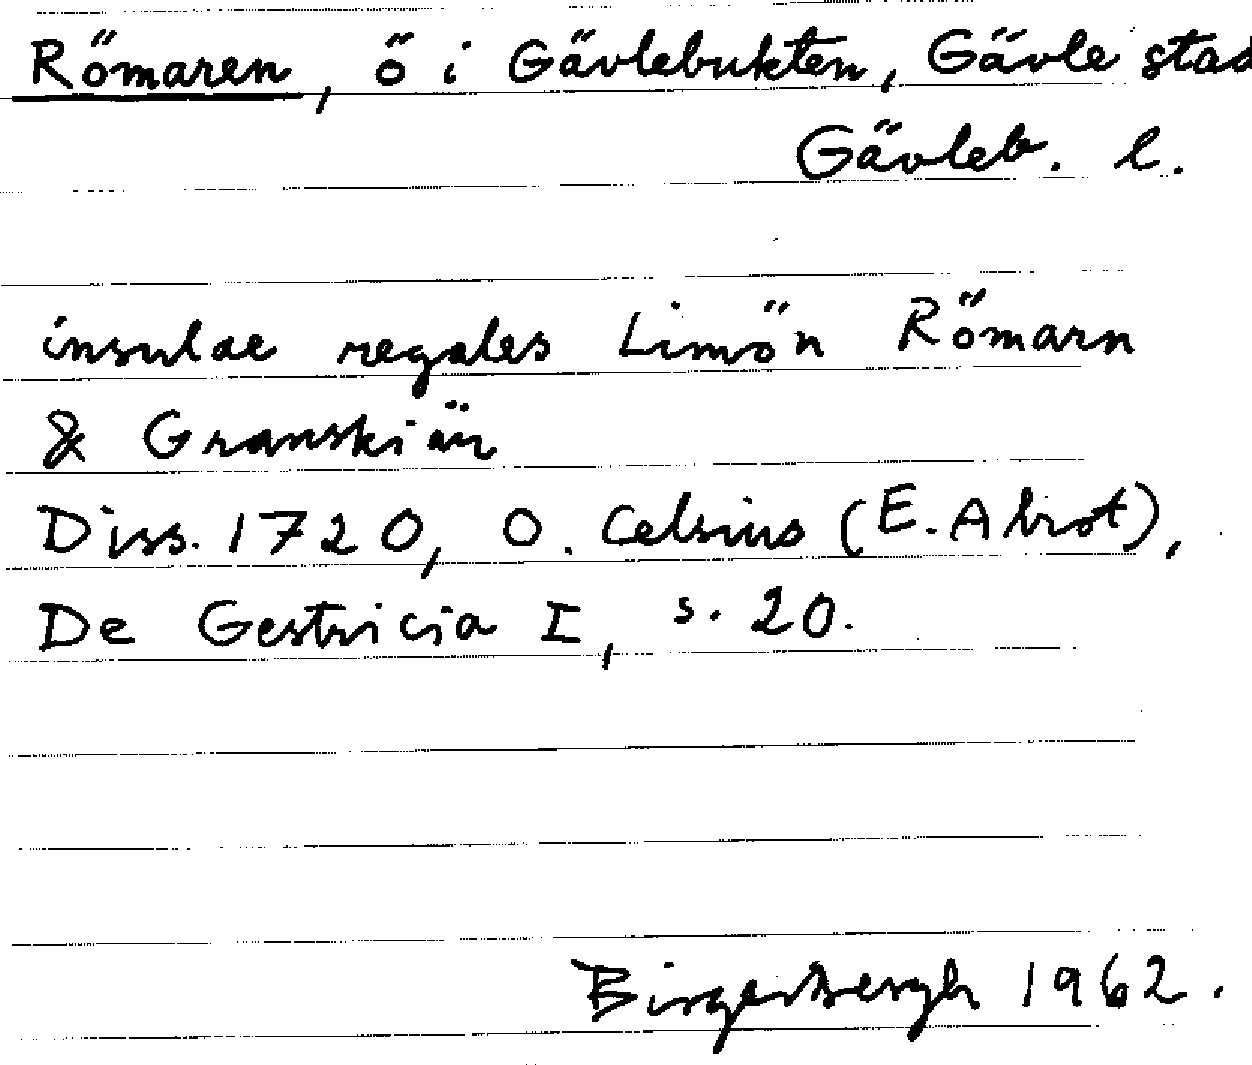 Römaren, ö i Gävlebukten, Gävle stad
Gävleb. l.
insulae regales Limön Römarn
& Granskiär
Diss. 1720, O. Celsius (E. Abrot),
De Gestricia I, s. 20.
Birgersbergh 1962.